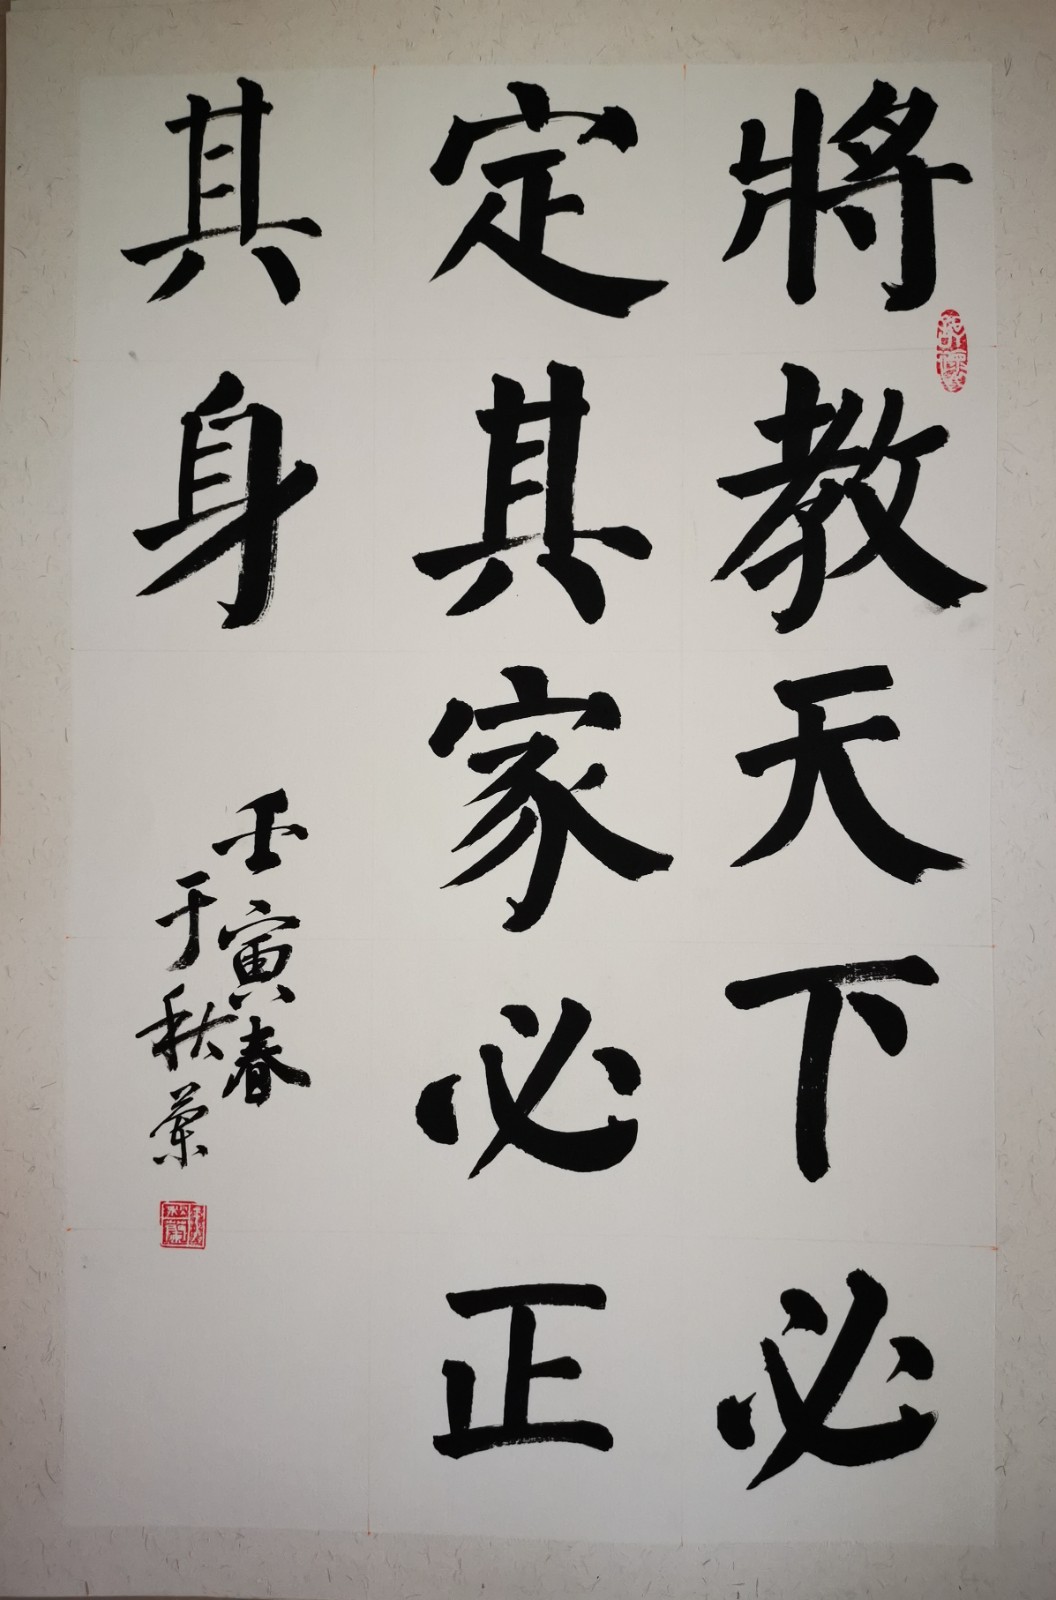 將教天下必
定其家必正
其身
壬寅春
于秋蘭